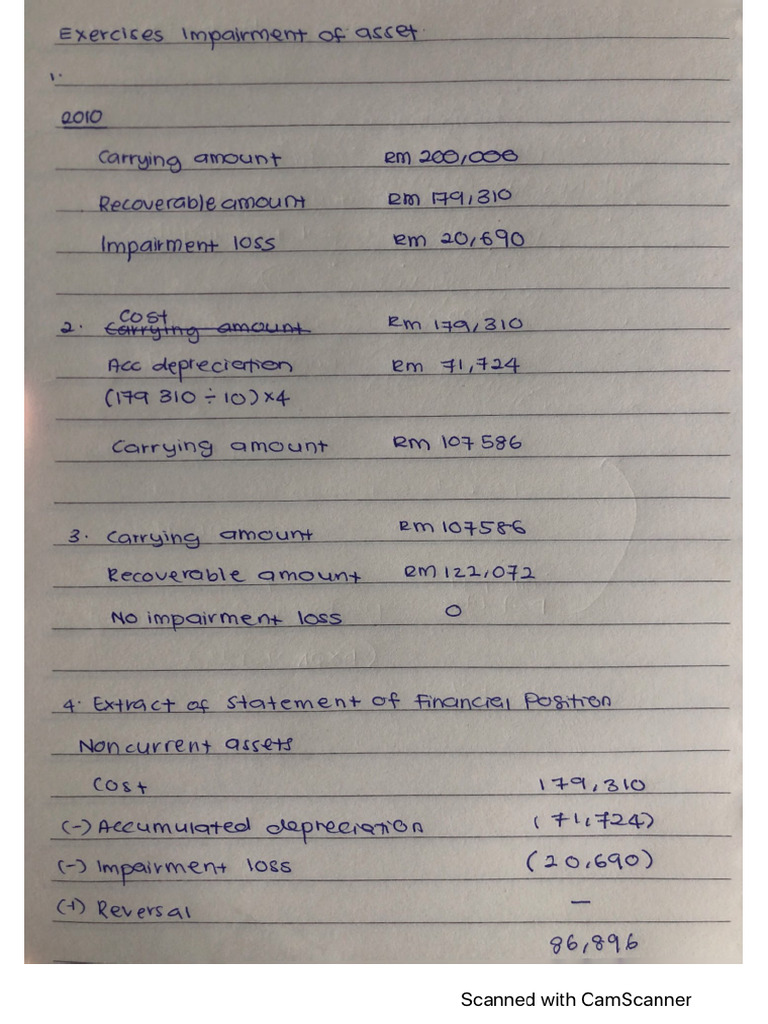 Exercises Impairment of asset.
1.
2010
Carrying amount RM 200,000
Recoverable amount RM 179,310
Impairment loss RM 20,690
cost
2. Carrying amount RM 179,310
Acc depreciation RM 71,724
(179 310 ÷ 10) × 4
Carrying amount RM 107 586
3. Carrying amount RM 107586
Recoverable amount RM 122,072
No impairment loss 0
4. Extract of statement of financial position
Non current assets
Cost 179,310
(-) Accumulated depreciation (71,724)
(-) Impairment loss (20,690)
(+) Reversal —
86,896
Scanned with CamScanner